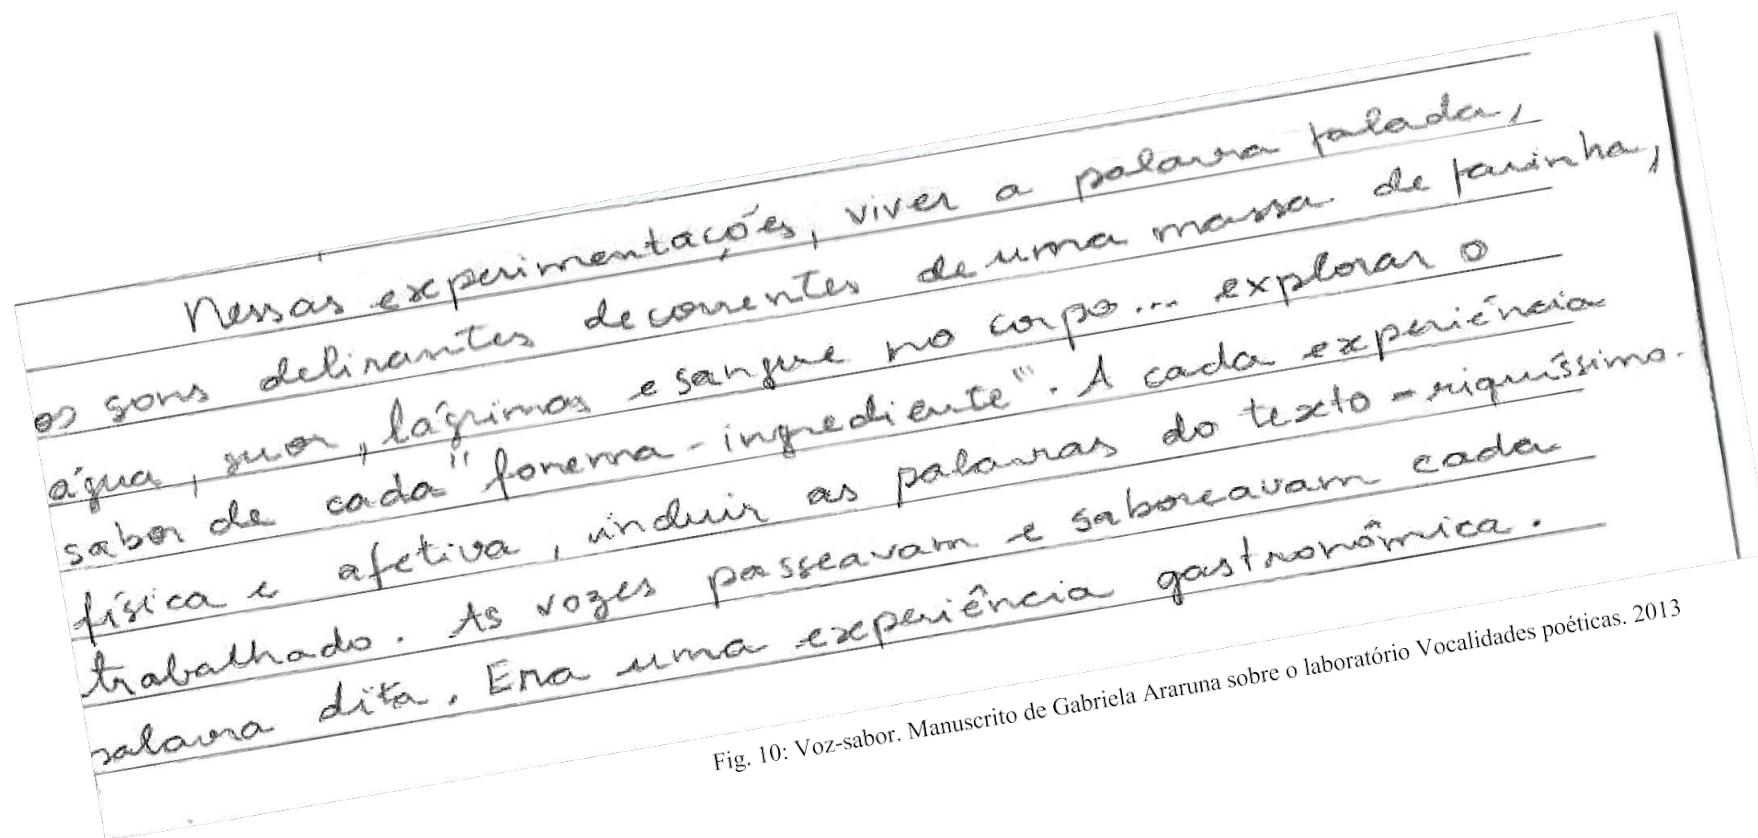 Nessas experimentações, viver a palavra falada,
os sons delirantes decorrentes de uma massa de farinha,
água, suor, lágrimas e sangue no corpo... explorar o
sabor de cada "fonema-ingrediente". A cada experiência
física e afetiva, incluir as palavras do texto - riquíssimo.
trabalhado. As vozes passeavam e saboreavam cada
palavra dita. Era uma experiência gastronômica.
Fig. 10: Voz-sabor. Manuscrito de Gabriela Araruna sobre o laboratório Vocalidades poéticas. 2013